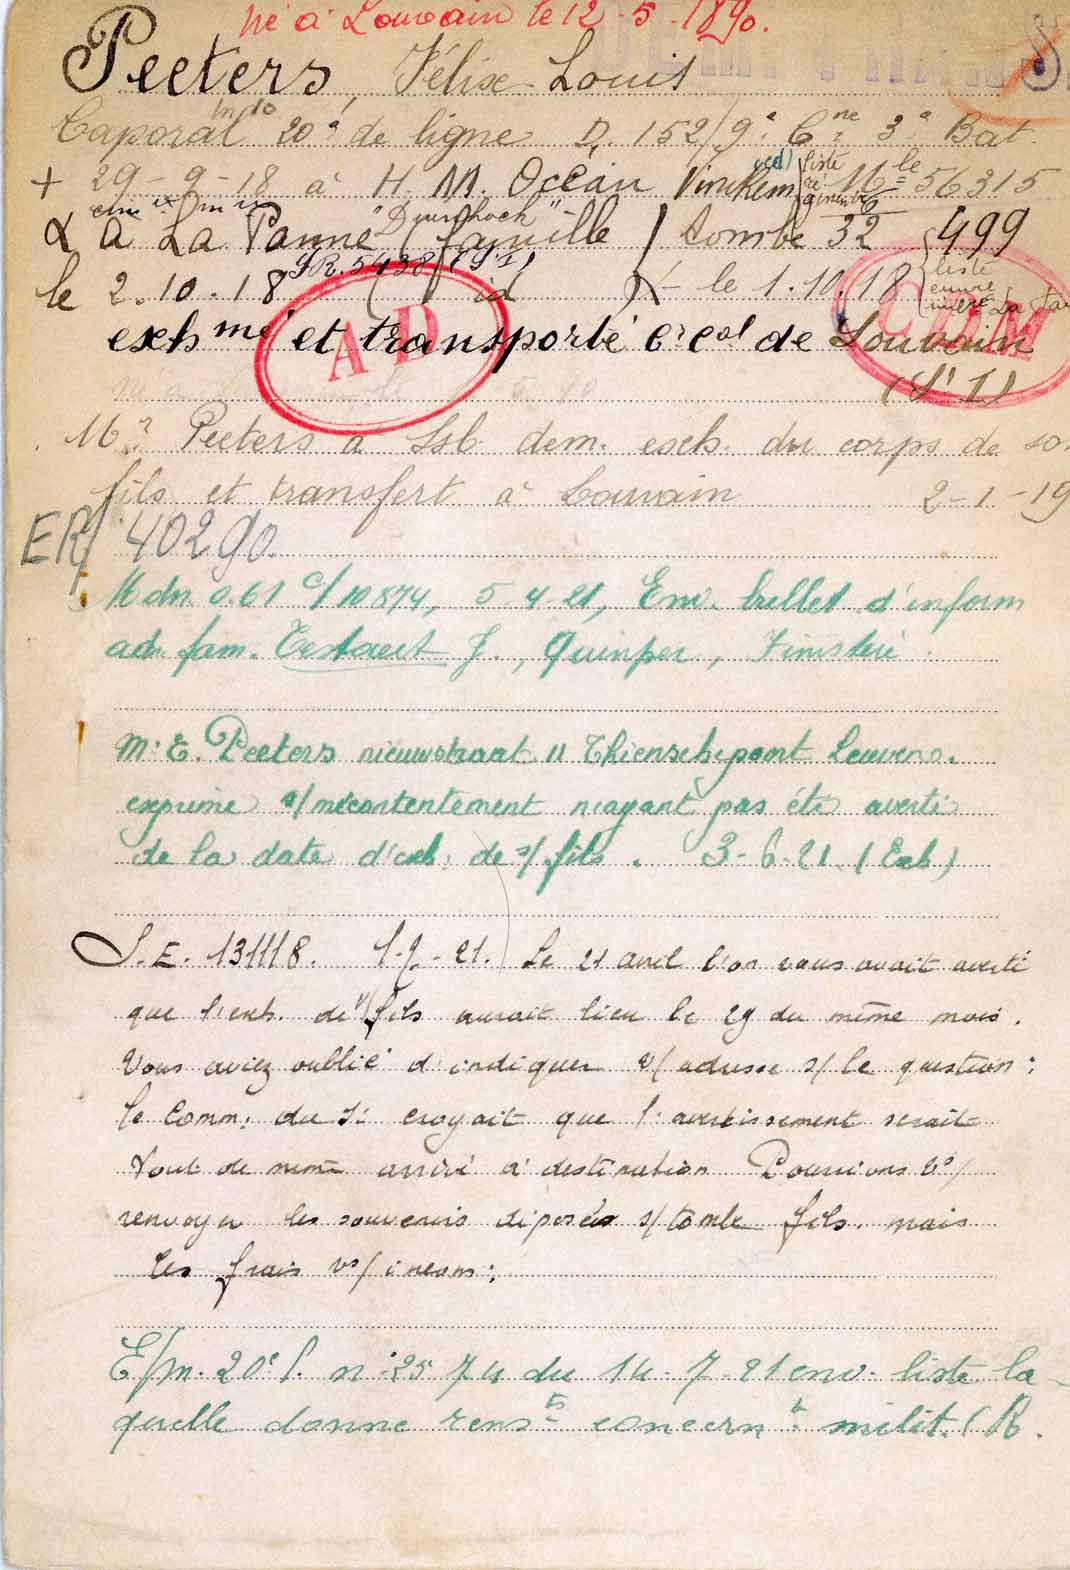 né à Louvain le 12-5-1890.
Peeters, Félix Louis
Caporal 20e de ligne D. 152/9e Cne 3e Bat.
+ 29-9-18 à H. M. Océan Vinckem Mle 56315
à La Panne (famille) tombe 32 499
le 2.10.18 id le 1.10.18
exhmé et transporté Cre Cal de Louvain
A D
(St I)
Mr Peeters à dem. exh. du corps de
fils et transfert à Louvain 2-1-19
ER/ 40290.
Mdn 0.61 c/10874, 5-4-21, Env. d'inform
adr. fam. J., Quimper, Finistère.
Mr E. Peeters nieuwstraat 11 Thienschepoort Leuven.
exprime s/mécontentement n'ayant pas été averti
de la date d'exh. de s/fils. 3-6-21. (Exh)
S.E. 131118. Le 21 avril l'on vous avait averti
que l'exh. de v/fils aurait lieu le 29 du même mois.
Vous aviez oublié d'indiquer v/adresse s/le question:
le Comm: du Si croyait que l'avertissement serait
tout de même arrivé à destination Pourrions vs/
renvoyer les souvenirs déposés s/tombe fils. mais
les frais vs/incom:,
E/m. 20e l. n: 2574 du 14-7-21 env. liste la-
quelle donne rensts concernt milit. (R.